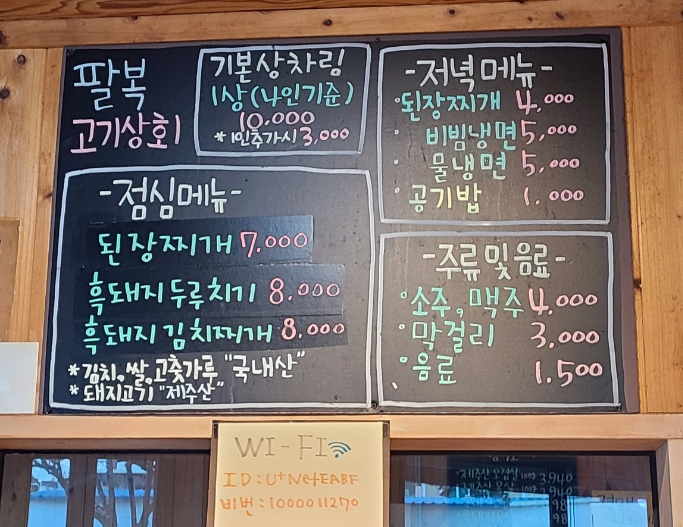 팔복
고기상회
기본상차림
1상(4인기준)
10,000
*1인추가시 3,000
-점심메뉴-
된장찌개 7.000
흑돼지두루치기 8.000
흑돼지김치찌개 8.000
*김치,쌀,고춧가루 "국내산"
*돼지고기 "제주산"
-저녁메뉴-
·된장찌개 4,000
·비빔냉면 5,000
·물냉면 5,000
·공기밥 1.000
-주류 및 음료-
·소주, 맥주 4,000
·막걸리 3,000
·음료 1.500
WI-FI
ID:U+NetEABF
비번:1000011270
3,940